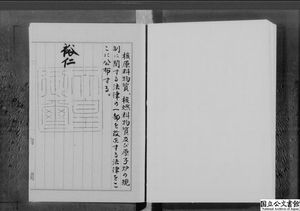 核原料物質、核燃料物質及び原子炉の規
制に関する法律の一部を改正する法律をこ
こに公布する。
裕仁
国立公文書館
National Archives of Japan